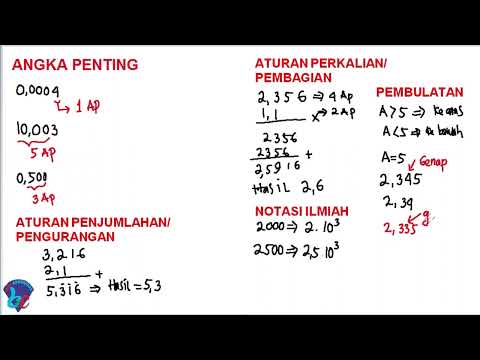 ANGKA PENTING
0,0004
1 AP
10,003
5 AP
0,500
3 AP
ATURAN PENJUMLAHAN/
PENGURANGAN
3,216
2,1
+
5,316 ⇒ Hasil = 5,3
ATURAN PERKALIAN/
PEMBAGIAN
2,356 ⇒ 4 AP
1,1 x ⇒ 2 AP
2356
2356 +
2,5916
Hasil 2,6
NOTASI ILMIAH
2000 ⇒ 2.10³
2500 ⇒ 2,5.10³
PEMBULATAN
A>5 ⇒ ke atas
A<5 ⇒ ke bawah
A=5
Genap
2,345
2,34
g
2,335